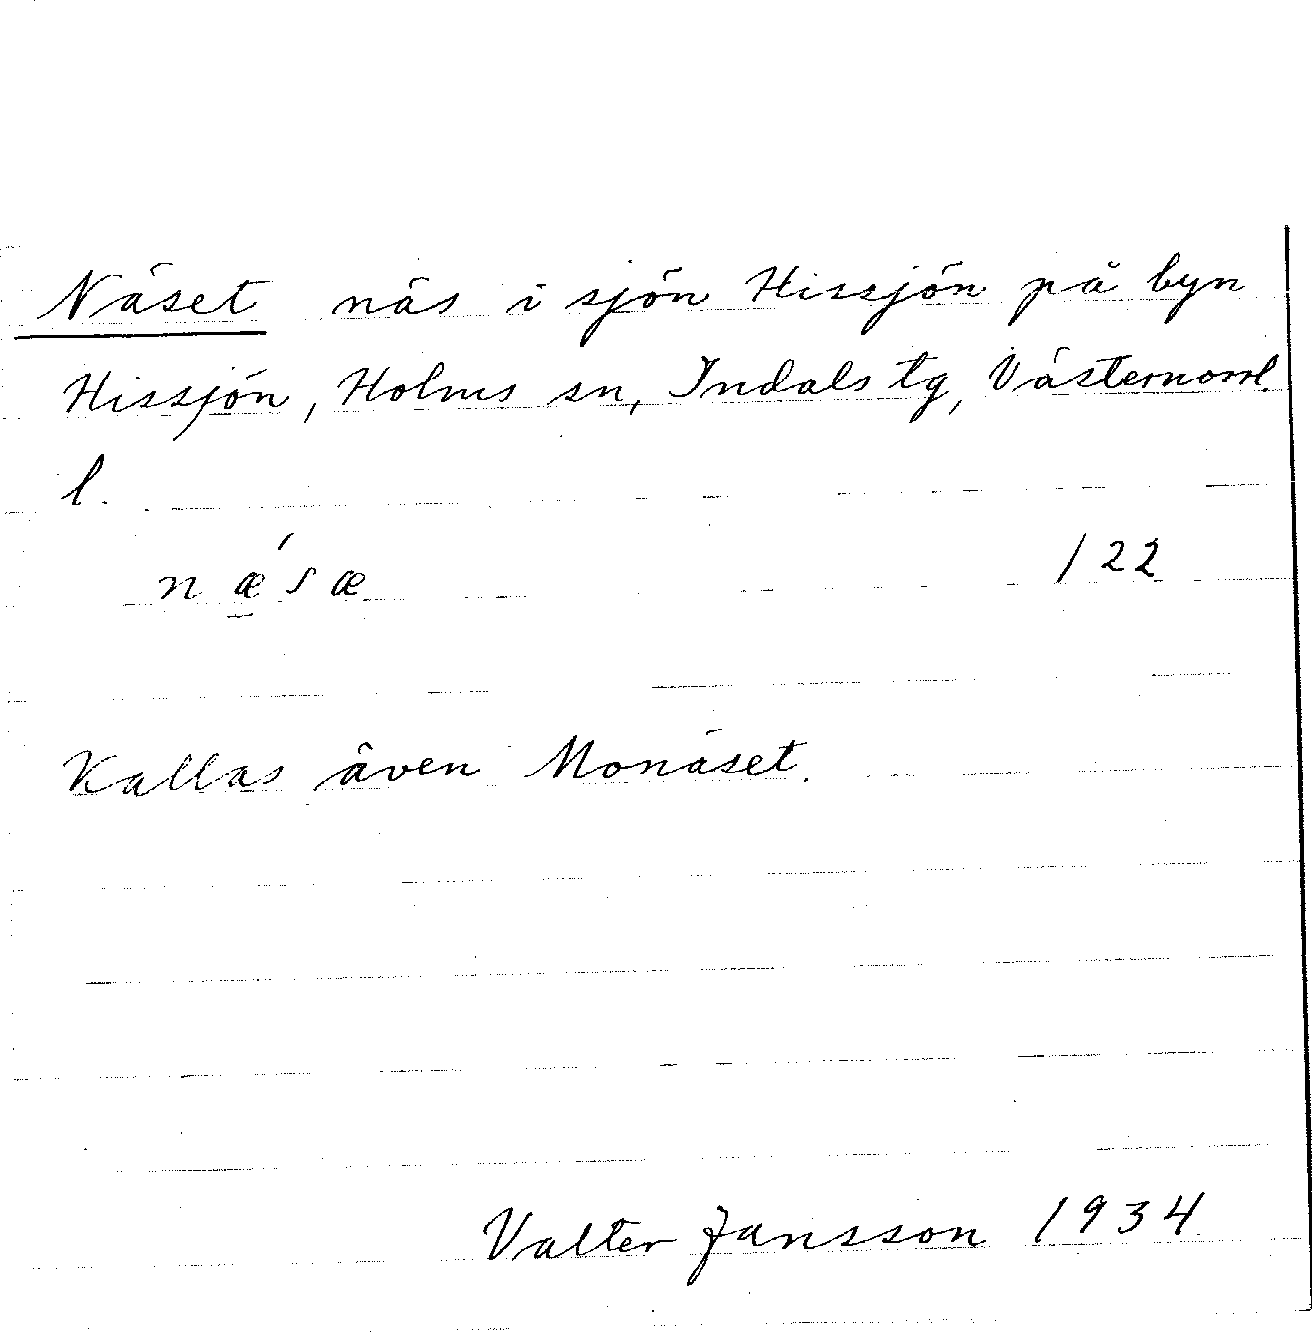 Näset näs i sjön Hissjön på byn
Hissjön, Holms sn, Indals tg, Västernorrl.
l.
nǽ̲sæ 122
Kallas även Monäset.
Valter Jansson 1934